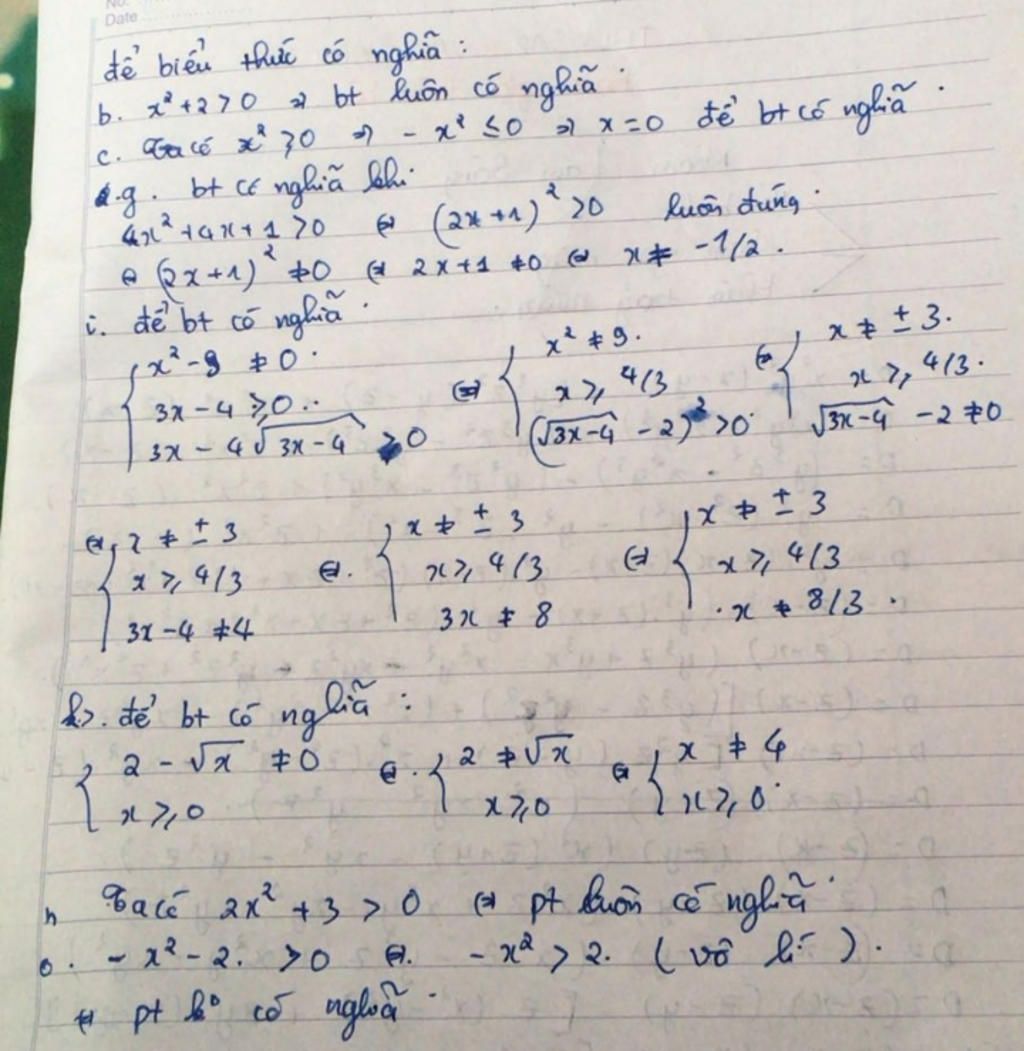 No.
Date
để biểu thức có nghĩa :
b. x² + 2 > 0 => bt luôn có nghĩa.
c. Ta có x² ≥ 0 => - x² ≤ 0 => x = 0 để bt có nghĩa.
g. bt có nghĩa khi.
4x² + 4x + 1 > 0 <=> (2x + 1)² > 0 luôn đúng.
<=> (2x + 1)² ≠ 0 <=> 2x + 1 ≠ 0 <=> x ≠ -1/2.
i. để bt có nghĩa.
{ x² - 9 ≠ 0. <=> { x² ≠ 9. <=> { x ≠ ± 3.
3x - 4 ≥ 0.. x ≥ 4/3 x ≥ 4/3.
3x - 4√3x-4 > 0 (√3x-4 - 2)² > 0 √3x-4 - 2 ≠ 0
<=> { x ≠ ± 3 <=>. { x ≠ ± 3 <=> { x ≠ ± 3
x ≥ 4/3 x ≥ 4/3 x ≥ 4/3
3x - 4 ≠ 4 3x ≠ 8 . x ≠ 8/3 .
k>. để bt có nghĩa :
{ 2 - √x ≠ 0 <=>. { 2 ≠ √x <=> { x ≠ 4
x ≥ 0 x ≥ 0 x ≥ 0.
n Ta có 2x² + 3 > 0 <=> pt luôn có nghĩa.
o. - x² - 2. > 0 <=>. - x² > 2. (vô lí).
<=> pt k° có nghĩa.